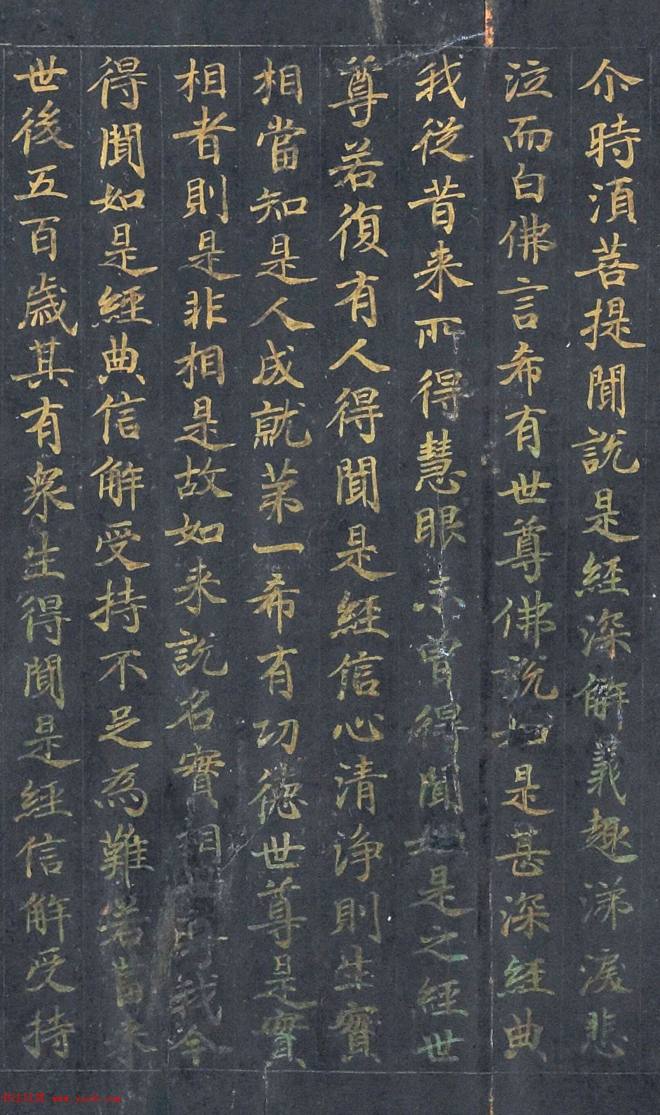 尒時湏菩提聞說是經深解義趣涕淚悲
泣而白佛言希有世尊佛説如是甚深經典
我従昔来所得慧眼未曾得聞如是之經世
尊若復有人得聞是經信心清淨則生實
相當知是人成就苐一希有功德世尊是實
相者則是非相是故如来説名實相世尊我今
得聞如是經典信解受持不足為難若當来
世後五百歳其有衆生得聞是經信解受持